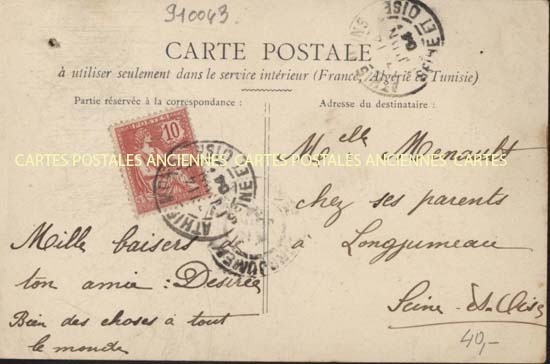 910043
CARTE POSTALE
à utiliser seulement dans le service intérieur (France, Algérie & Tunisie)
Partie réservée à la correspondance :
Adresse du destinataire :
POSTES
10
CARTES POSTALES ANCIENNES CARTES POSTALES ANCIENNES CARTES POSTALES ANCIENNES
Melle Menault
chez ses parents
à Longjumeau
Seine-&-Oise
Mille baisers de
ton amie : Désirée
Bien des choses à tout
le monde
ATHIS-MONS
SEINE ET OISE
04
40,-